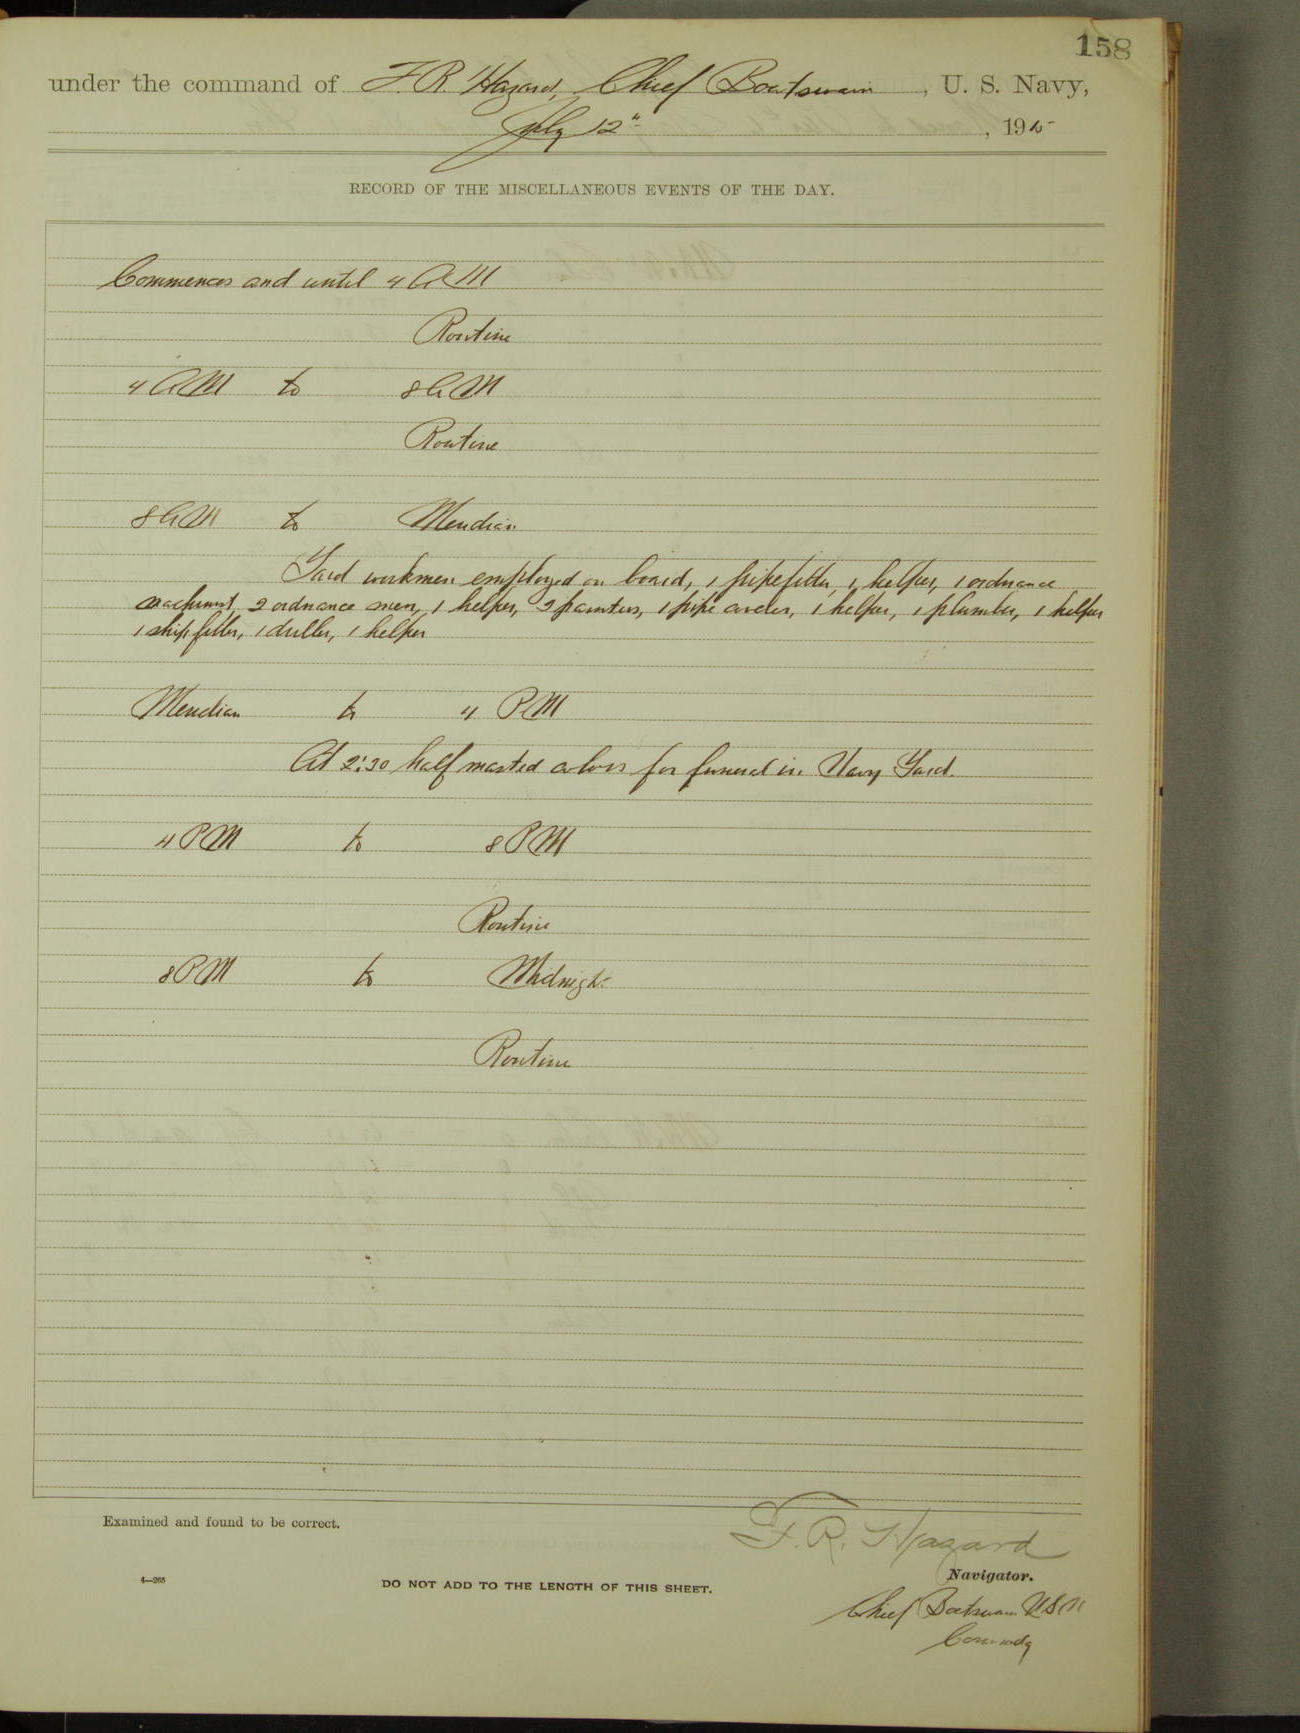 158
under the command of F. R. Hazard, Chief Boatswain, U. S. Navy,
July 12", 191
RECORD OF THE MISCELLANEOUS EVENTS OF THE DAY.
Commences and until 4 AM
Routine
4 AM to 8 AM
Routine
8 AM to Meridian
Yard workmen employed on board, 1 pipefitter, 1 helper, 1 ordnance
machinist, 2 ordnance men, 1 helper, 2 painters, 1 pipe coverer, 1 helper, 1 plumber, 1 helper
1 shipfitter, 1 driller, 1 helper
Meridian to 4 PM
At 2:30 half masted colors for funeral in Navy Yard.
4 PM to 8 PM
Routine
8 PM to Midnight
Routine
Examined and found to be correct.
F. R. Hazard
Navigator.
4—265
DO NOT ADD TO THE LENGTH OF THIS SHEET.
Chief Boatswain U.S.N
Comm'dg